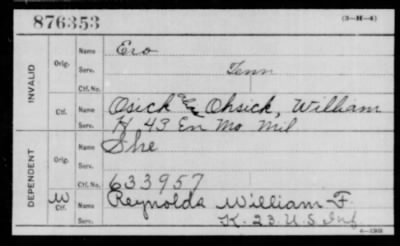 876353
(3-H-4)
INVALID
Orig.
Name Ero
Serv. Tenn
Ctf. No.
Ctf.
Name Osick or Ohsick, William
Serv. H 43 En Mo Mil
DEPENDENT
Orig.
Name She
Serv.
Ctf. No. 633957
W
Ctf.
Name Reynolds William F.
Serv. K. 23 U.S. Inf.